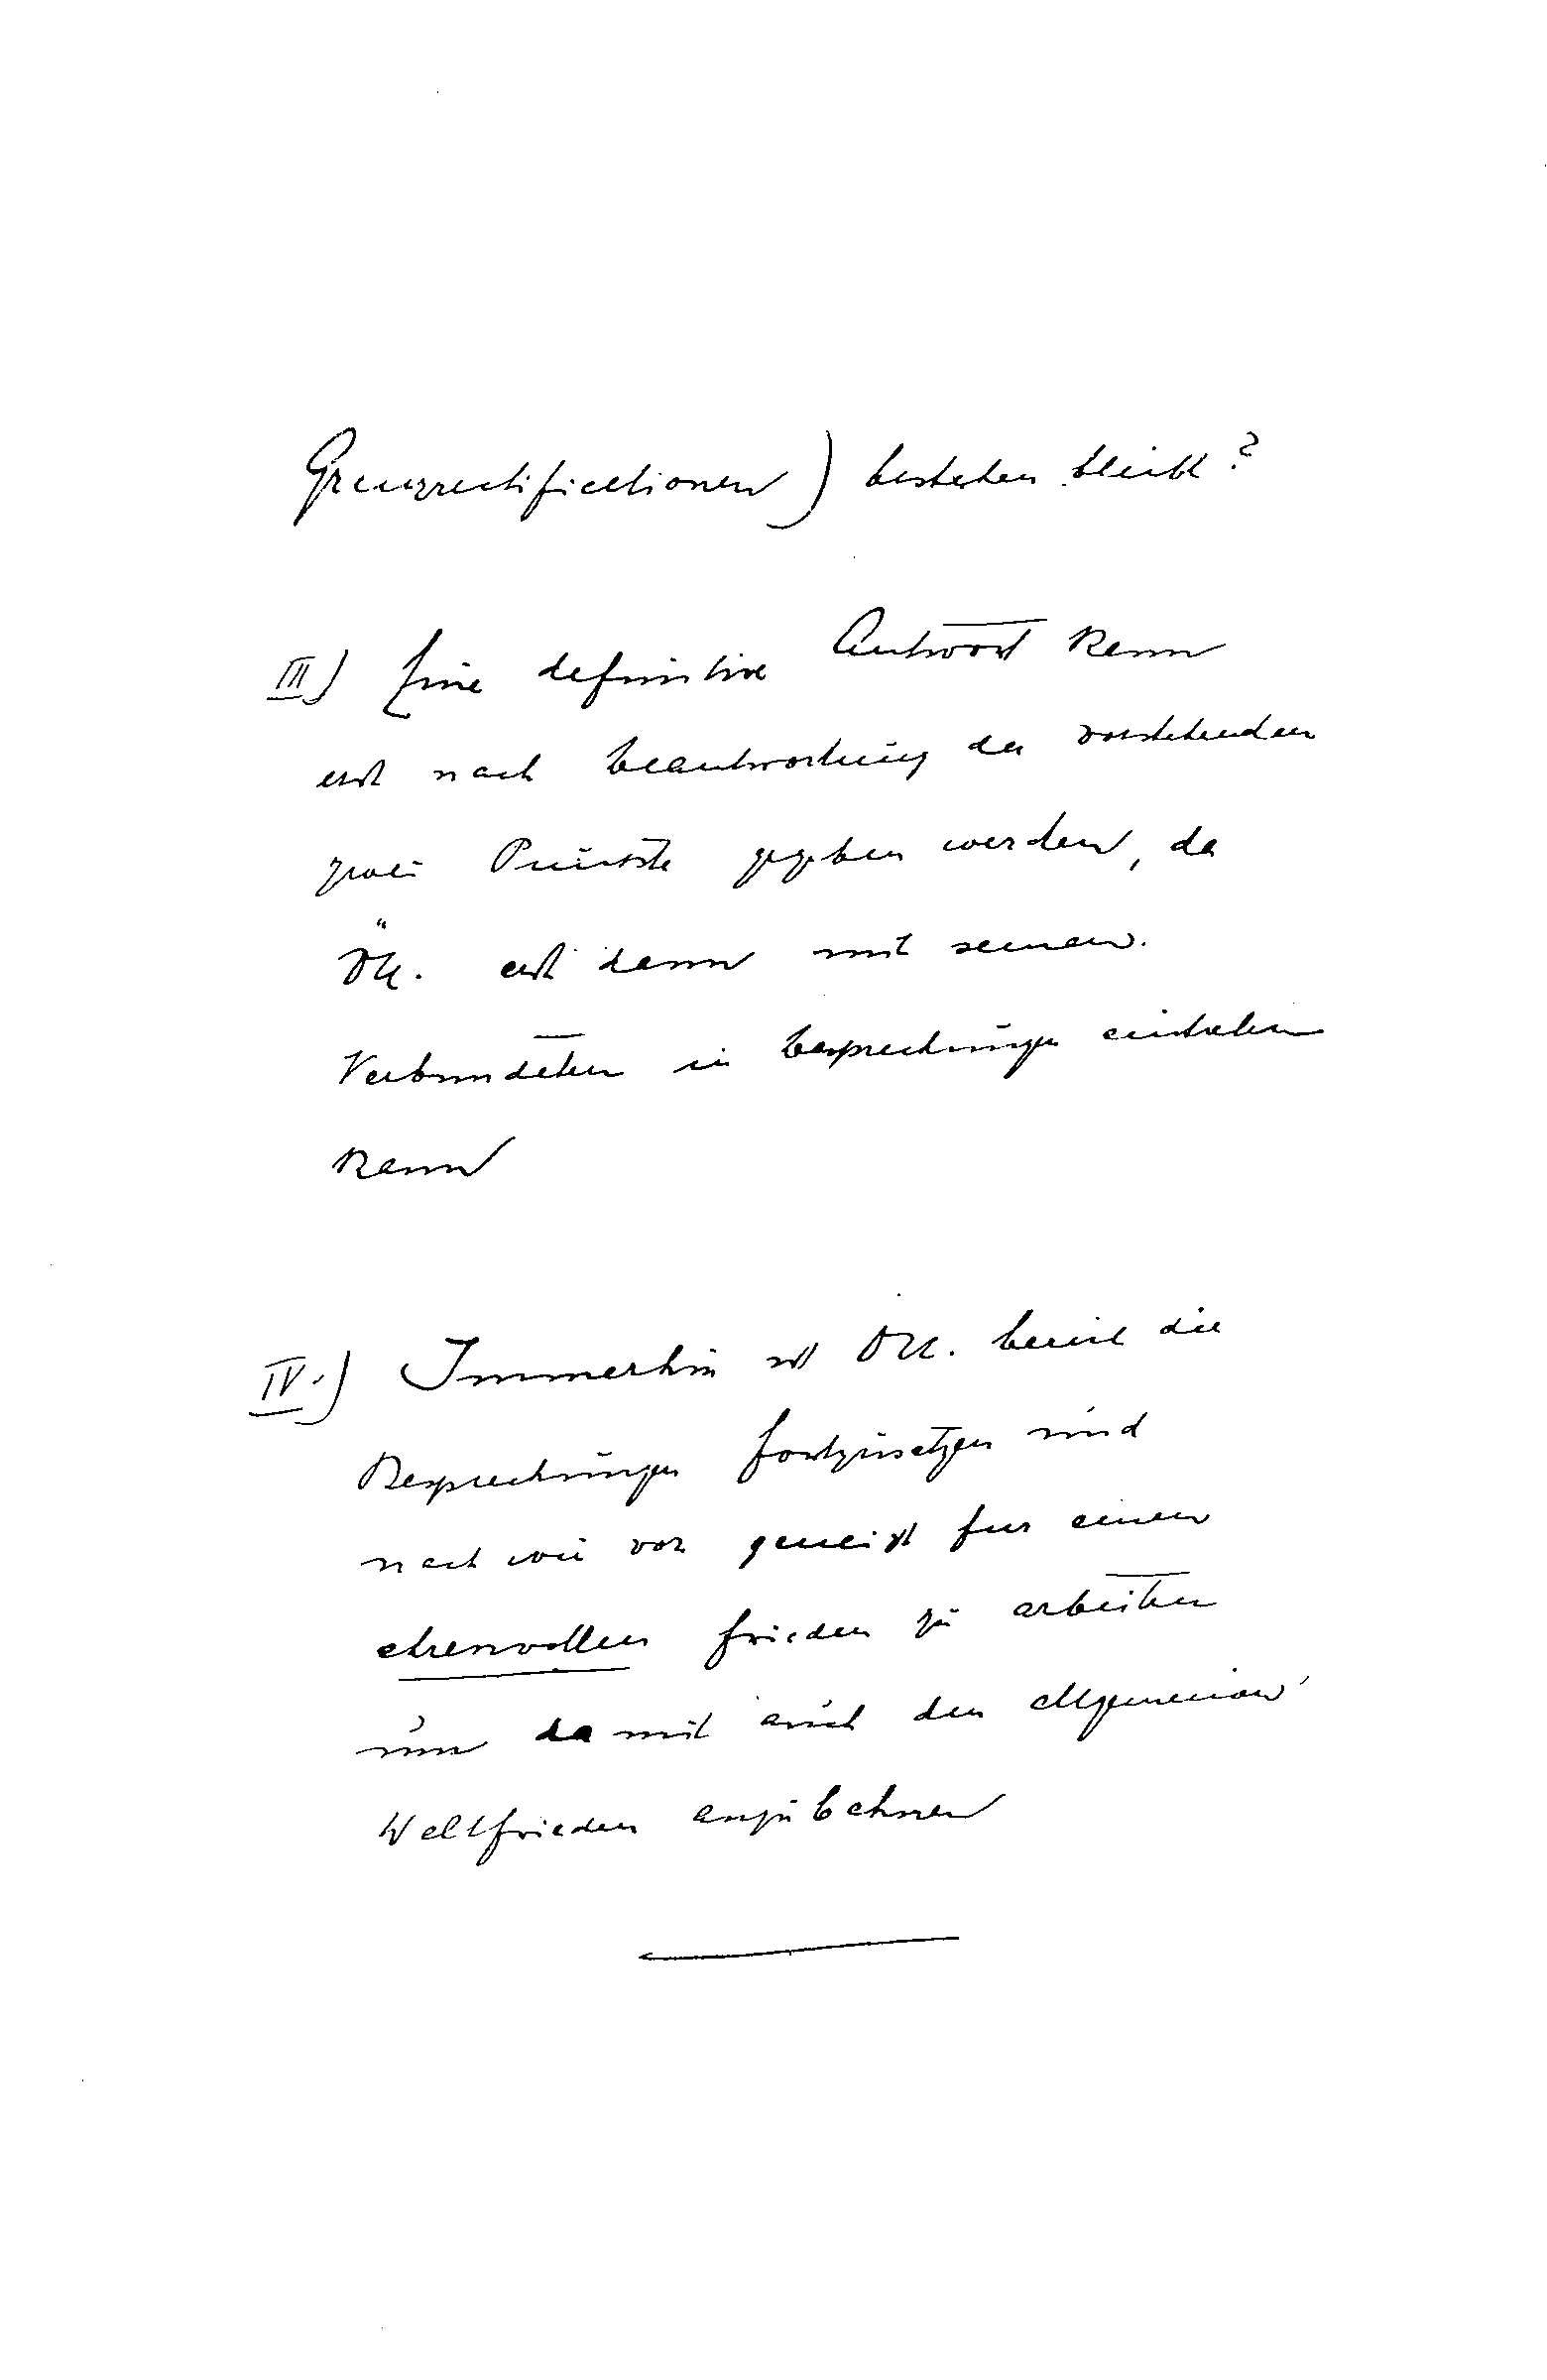 Grenzrectificationen) bestehen bleibt?
III) Eine definitive Antwort kann
erst nach Beantwortung der vorstehenden
zwei Punkte gegeben werden, da
ÖU. erst dann mit seinen
Verbundeten in Besprechungen eintreten
kann
IV.) Immerhin ist ÖU. bereit die
Besprechungen fortzusetzen und
nach wie vor geneigt fur einen
ehrenvollen Frieden zu arbeiten
um damit auch den allgemeinen
Weltfrieden anzubahnen